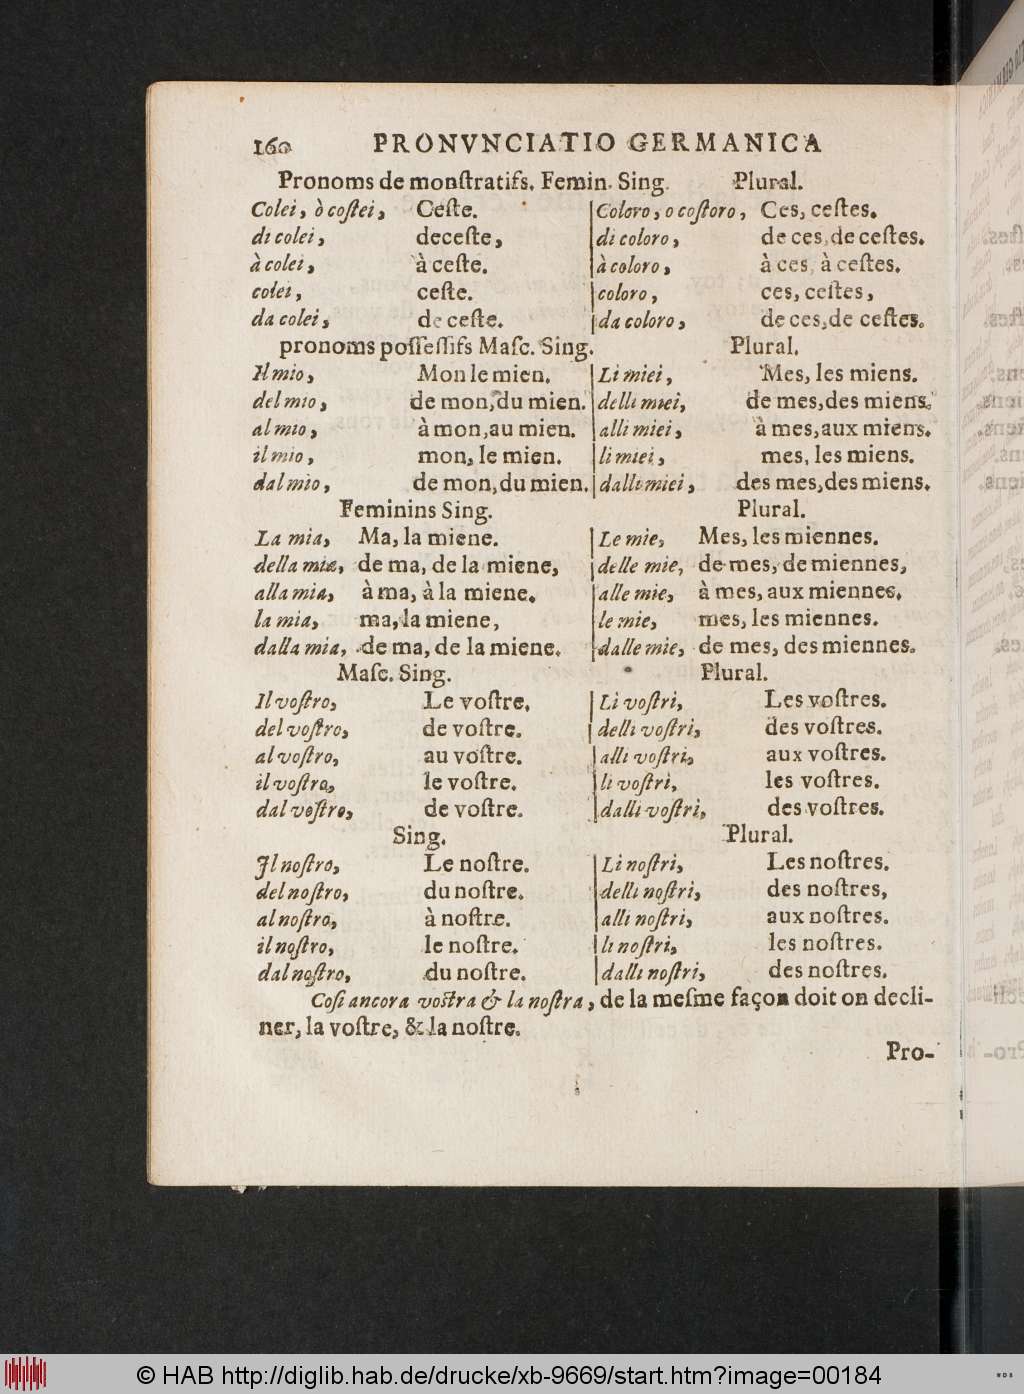 160 PRONVNCIATIO GERMANICA
Pronoms de monſtratifs. Femin. Sing. Plural.
Colei, ò coſtei, Ceſte. Coloro, o coſtoro, Ces, ceſtes.
di colei, deceſte, di coloro, de ces, de ceſtes.
à colei, à ceſte. à coloro, à ces, à ceſtes.
colei, ceſte. coloro, ces, ceſtes,
da colei, de ceſte. da coloro, de ces, de ceſtes.
pronoms poſſeſſifs Maſc. Sing. Plural.
Il mio, Mon le mien. Li miei, Mes, les miens.
del mio, de mon, du mien. delli miei, de mes, des miens.
al mio, à mon, au mien. alli miei, à mes, aux miens.
il mio, mon, le mien. li miei, mes, les miens.
dal mio, de mon, du mien. dalli miei, des mes, des miens.
Feminins Sing. Plural.
La mia, Ma, la miene. Le mie, Mes, les miennes.
della mia, de ma, de la miene, delle mie, de mes, de miennes,
alla mia, à ma, à la miene. alle mie, à mes, aux miennes.
la mia, ma, la miene, le mie, mes, les miennes.
dalla mia, de ma, de la miene. dalle mie, de mes, des miennes.
Maſc. Sing. Plural.
Il voſtro, Le voſtre. Li voſtri, Les voſtres.
del voſtro, de voſtre. delli voſtri, des voſtres.
al voſtro, au voſtre. alli voſtri, aux voſtres.
il voſtro, le voſtre. li voſtri, les voſtres.
dal voſtro, de voſtre. dalli voſtri, des voſtres.
Sing. Plural.
Il noſtro, Le noſtre. Li noſtri, Les noſtres.
del noſtro, du noſtre. delli noſtri, des noſtres,
al noſtro, à noſtre. alli noſtri, aux noſtres.
il noſtro, le noſtre. li noſtri, les noſtres.
dal noſtro, du noſtre. dalli noſtri, des noſtres.
Coſi ancora voſtra & la noſtra, de la meſme façon doit on decli-
ner, la voſtre, & la noſtre.
Pro-
© HAB http://diglib.hab.de/drucke/xb-9669/start.htm?image=00184